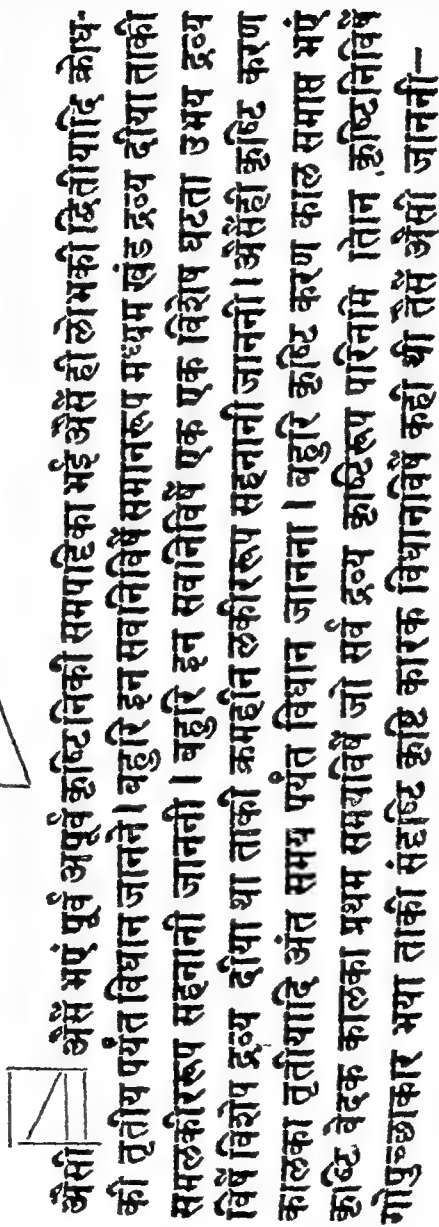 औसी औसैं भएं पूर्व अपूर्व कृष्टिनिकी समपट्टिका भई औसैं ही लोभकी द्वितीयादि क्रोध-
की तृतीय पर्यंत विधान जानने । बहुरि इन सवनिविषैं समानरूप मध्यम खंड द्रव्य दीया ताकी
समलकीररूप सहनानी जाननी । बहुरि इन सवनिविषैं एक एक विशेष घटता उभय द्रव्य
विषैं विशेष द्रव्य दीया था ताकी क्रमहीन लकीररूप सहनानी जाननी । औसैंही कृष्टि करण
कालका तृतीयादि अंत समय पर्यंत विधान जानना । बहुरि कृष्टि करण काल समाप्त भएं
कृष्टि वेदक कालका प्रथम समयविषैं जो सर्व द्रव्य कृष्टिरूप परिनमि तिनि कृष्टिनिविषैं
गोपुच्छाकार भया ताकी संदृष्टि कृष्टि कारक विधानविषैं कही थी तैसैं औसी जाननी—